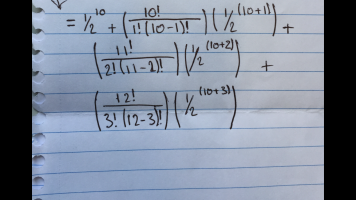 = 1/2^10 + (10!/1!(10-1)!)(1/2^(10+1)) +
(11!/2!(11-2)!)(1/2^(10+2)) +
(12!/3!(12-3)!)(1/2^(10+3))